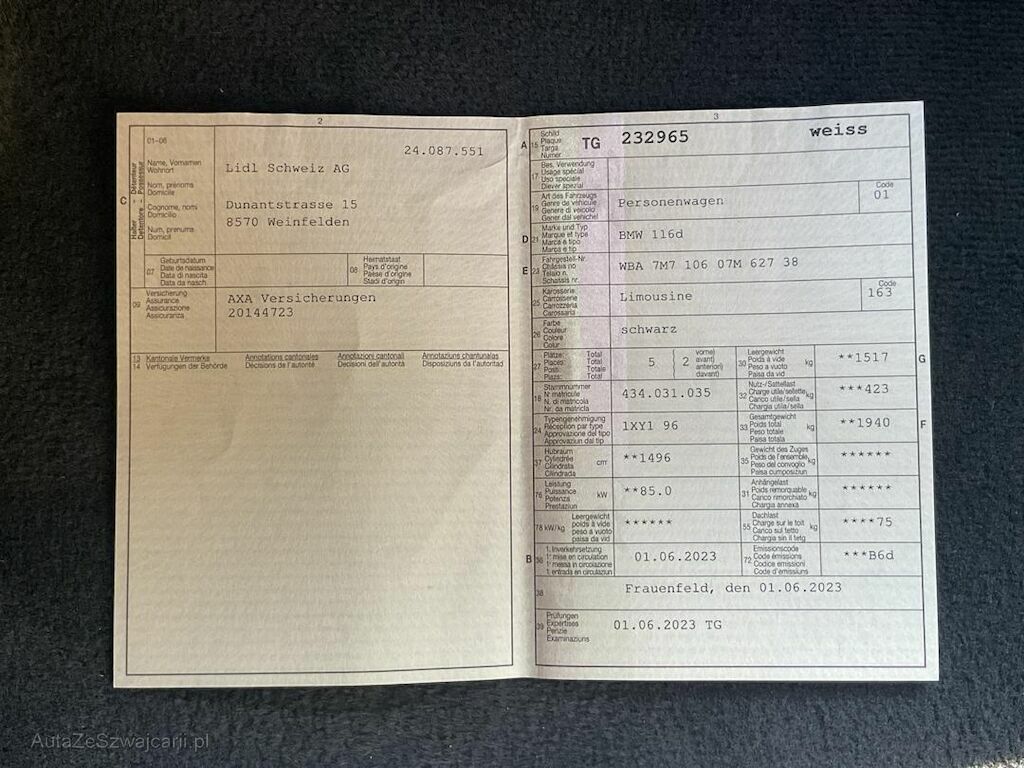 2
01-06
24.087.551
C
Halter - Détenteur
Detentore - Possessur
Name, Vornamen
Wohnort
Nom, prénoms
Domicile
Cognome, nomi
Domicilio
Num, prenums
Domicil
Lidl Schweiz AG
Dunantstrasse 15
8570 Weinfelden
07
Geburtsdatum
Date de naissance
Data di nascita
Data da nasch.
08
Heimatstaat
Pays d'origine
Paese d'origine
Stadi d'origin
09
Versicherung
Assurance
Assicurazione
Assicuranza
AXA Versicherungen
20144723
13 Kantonale Vermerke Annotations cantonales Annotazioni cantonali Annotaziuns chantunalas
14 Verfügungen der Behörde Décisions de l'autorité Decisioni dell'autorità Disposiziuns da l'autoritad
3
A
15
Schild
Plaque
Targa
Numer
TG 232965 weiss
17
Bes. Verwendung
Usage spécial
Uso speciale
Diever spezial
19
Art des Fahrzeugs
Genre de véhicule
Genere di veicolo
Gener dal vehichel
Personenwagen
Code
01
D
21
Marke und Typ
Marque et type
Marca e tipo
Marca e tip
BMW 116d
E
23
Fahrgestell-Nr.
Châssis no
Telaio n.
Schassis nr.
WBA 7M7 106 07M 627 38
25
Karosserie
Carrosserie
Carrozzeria
Carossaria
Limousine
Code
163
26
Farbe
Couleur
Colore
Colur
schwarz
27
Plätze: Total
Places: Total
Posti: Totale
Plazs: Total
5 2
vorne)
avant)
anteriori)
davant)
30
Leergewicht
Poids à vide
Peso a vuoto
Paisa da vid
kg
**1517
G
18
Stammnummer
N° matricule
N. di matricola
Nr. da matricla
434.031.035
32
Nutz-/Sattellast
Charge utile/sellette
Carico utile/sella
Chargia utila/sella
kg
***423
24
Typengenehmigung
Réception par type
Approvazione del tipo
Approvaziun dal tip
1XY1 96
33
Gesamtgewicht
Poids total
Peso totale
Paisa totala
kg
**1940
F
37
Hubraum
Cylindrée
Cilindrata
Cilindrada
cm³
**1496
35
Gewicht des Zuges
Poids de l'ensemble
Peso del convoglio
Paisa cumposiziun
kg
******
76
Leistung
Puissance
Potenza
Prestaziun
kW
**85.0
31
Anhängelast
Poids remorquable
Carico rimorchiato
Chargia annexa
kg
******
78 kW/kg
Leergewicht
poids à vide
peso a vuoto
paisa da vid
******
55
Dachlast
Charge sur le toit
Carico sul tetto
Chargia sin il tetg
kg
****75
B
36
1. Inverkehrsetzung
1re mise en circulation
1a messa in circolazione
1. entrada en circulaziun
01.06.2023
72
Emissionscode
Code émissions
Codice emissioni
Code d'emissiuns
***B6d
38
Frauenfeld, den 01.06.2023
39
Prüfungen
Expertises
Perizie
Examinaziuns
01.06.2023 TG
AutaZeSzwajcarii.pl